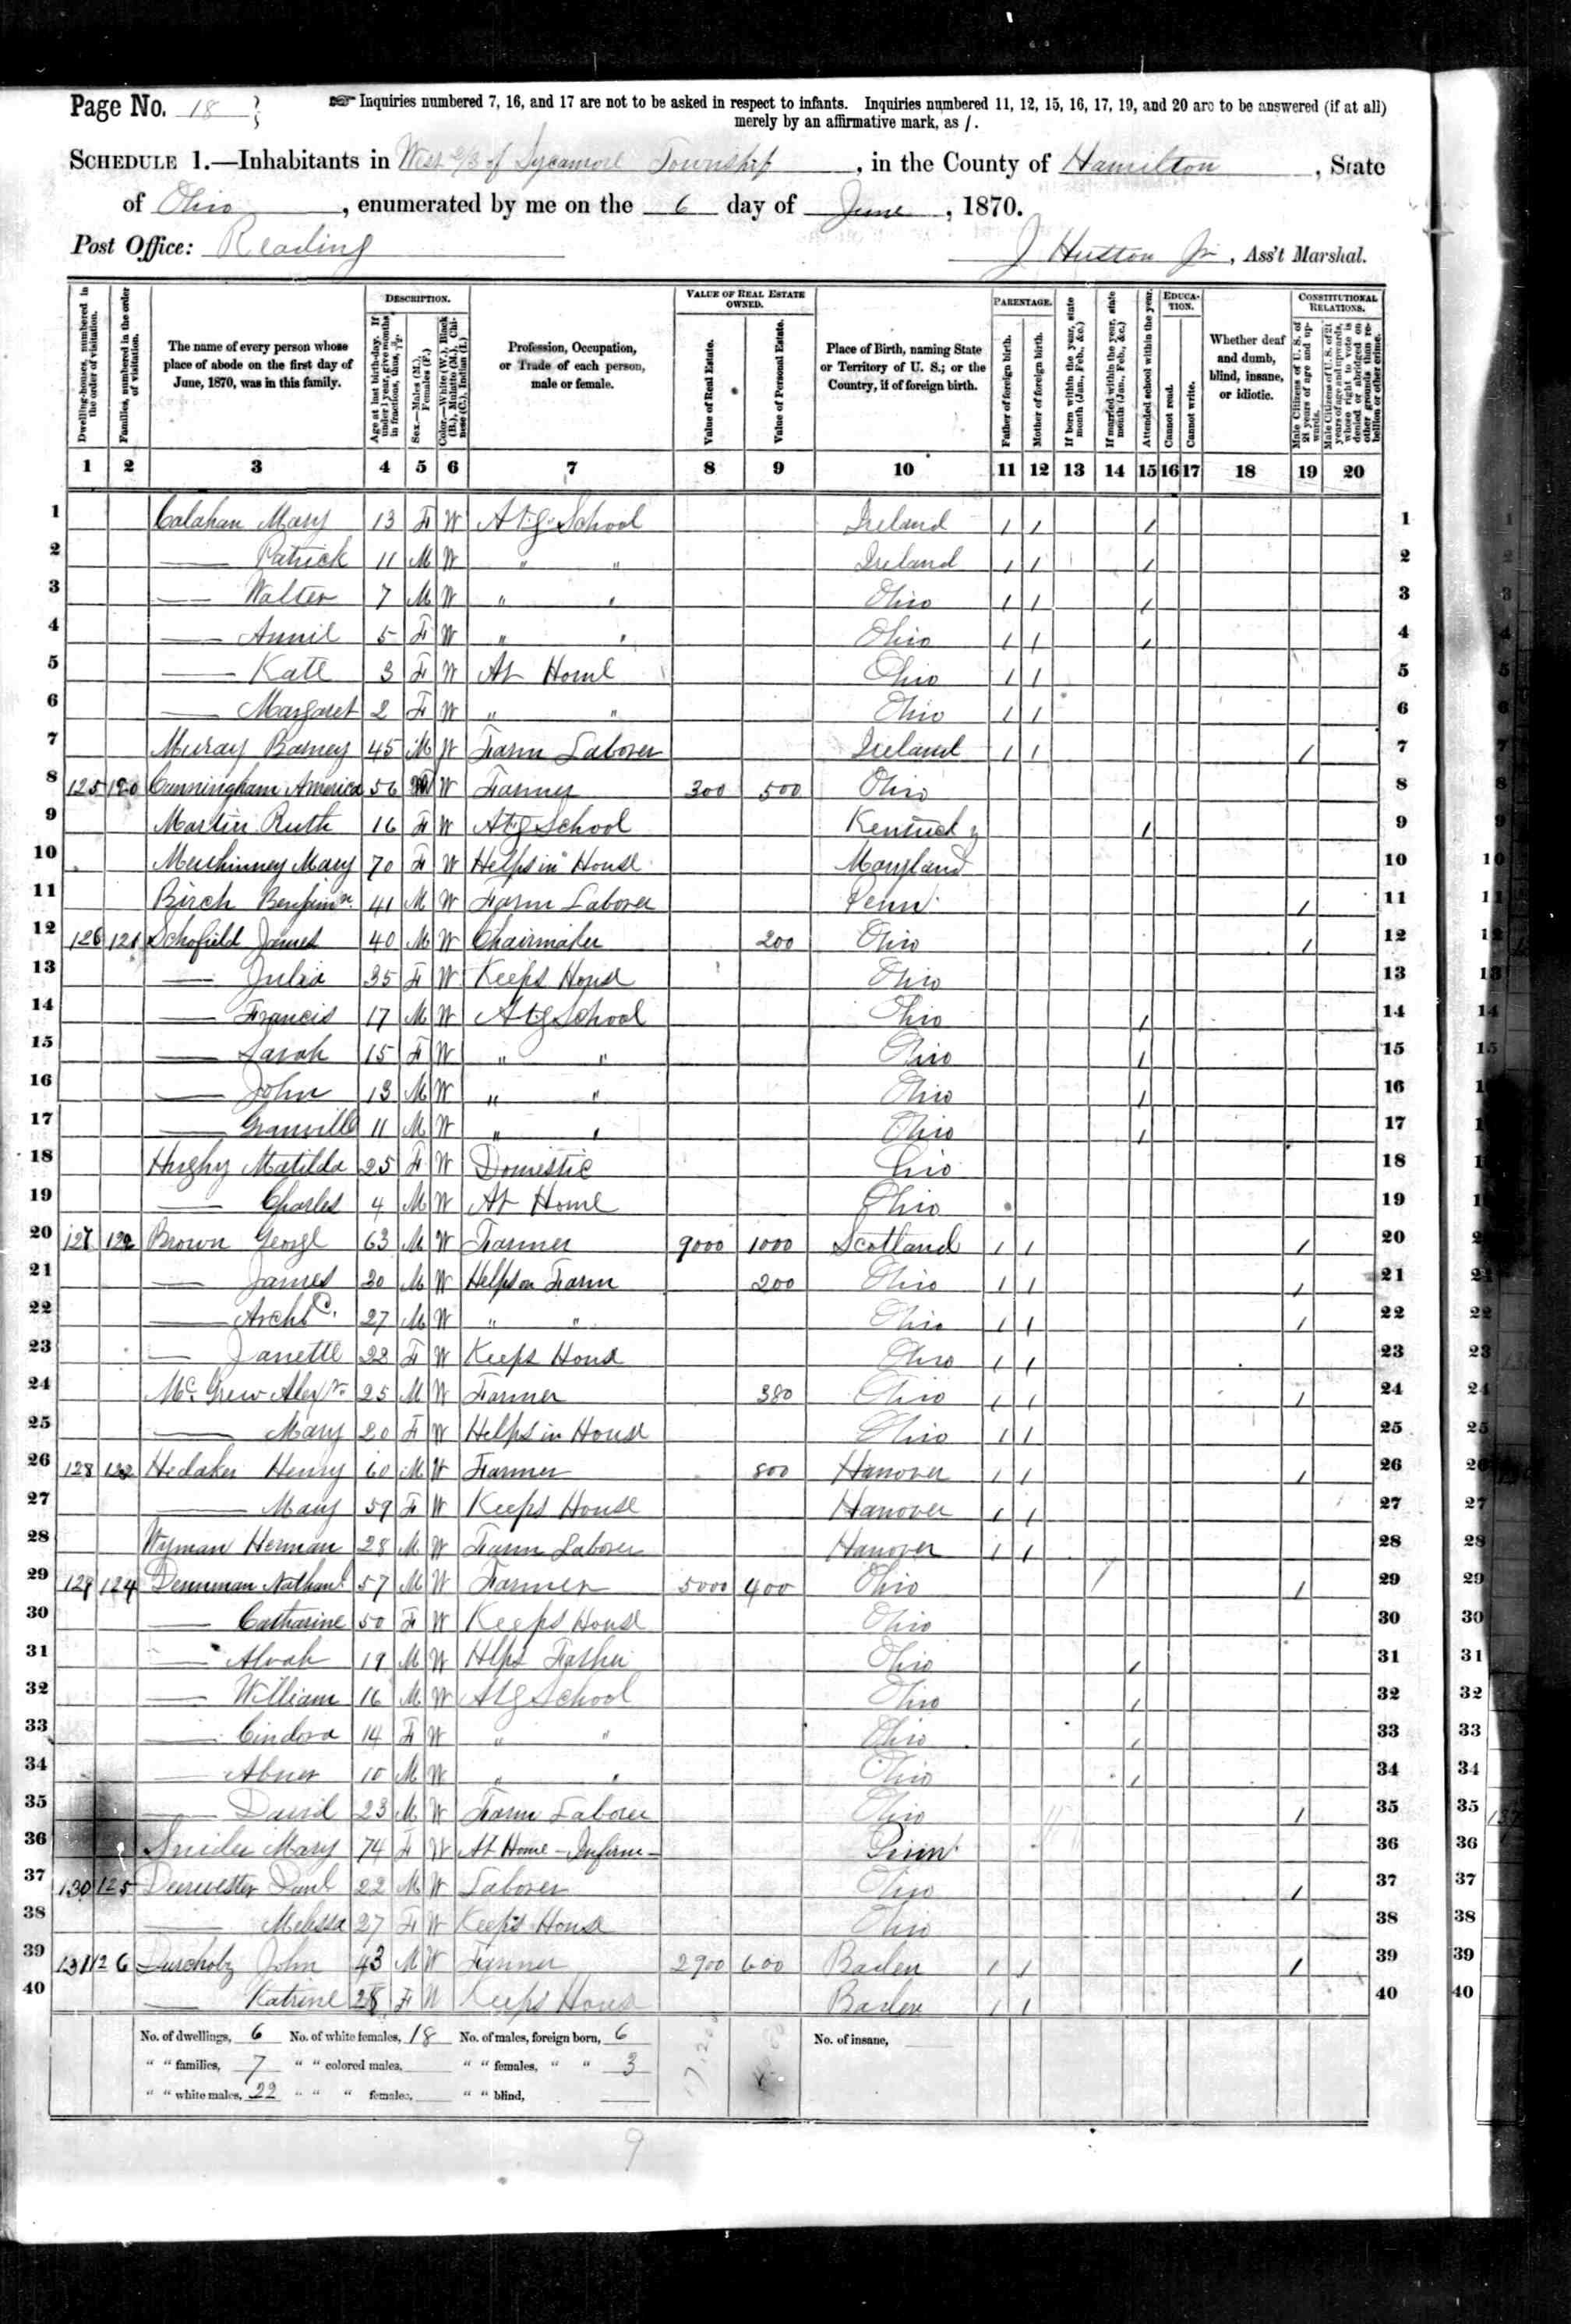 Page No. 18
☞ Inquiries numbered 7, 16, and 17 are not to be asked in respect to infants. Inquiries numbered 11, 12, 15, 16, 17, 19, and 20 are to be answered (if at all)
merely by an affirmative mark, as /.
SCHEDULE 1.—Inhabitants in West 2/3 of Sycamore Township, in the County of Hamilton, State
of Ohio, enumerated by me on the 6 day of June, 1870.
Post Office: Reading
J Hutton Jr, Ass't Marshal.
Dwelling-houses, numbered in the order of visitation.
Families, numbered in the order of visitation.
The name of every person whose place of abode on the first day of June, 1870, was in this family.
DESCRIPTION.
Age at last birth-day. If under 1 year, give months in fractions, thus, 3/12.
Sex.—Males (M.), Females (F.)
Color.—White (W.), Black (B.), Mulatto (M.), Chinese (C.), Indian (I.)
Profession, Occupation, or Trade of each person, male or female.
VALUE OF REAL ESTATE OWNED.
Value of Real Estate.
Value of Personal Estate.
Place of Birth, naming State or Territory of U. S.; or the Country, if of foreign birth.
PARENTAGE.
Father of foreign birth.
Mother of foreign birth.
If born within the year, state month (Jan., Feb., &c.)
If married within the year, state month (Jan., Feb., &c.)
Attended school within the year.
EDUCATION.
Cannot read.
Cannot write.
Whether deaf and dumb, blind, insane, or idiotic.
CONSTITUTIONAL RELATIONS.
Male Citizens of U. S. of 21 years of age and upwards.
Male Citizens of U. S. of 21 years of age and upwards, whose right to vote is denied or abridged on other grounds than rebellion or other crime.
1 2 3 4 5 6 7 8 9 10 11 12 13 14 15 16 17 18 19 20
1 Calahan Mary 13 F W Atg School Ireland / / / 1
2 — Patrick 11 M W " " Ireland / / / 2
3 — Walter 7 M W " " Ohio / / / 3
4 — Annie 5 F W " " Ohio / / / 4
5 — Kate 3 F W At Home Ohio / / 5
6 — Margaret 2 F W " " Ohio / / 6
7 Muray Barney 45 M W Farm Laborer Ireland / / / 7
8 125 120 Cunningham America 56 W Farmer 300 500 Ohio 8
9 Martin Ruth 16 F W Atg School Kentucky / 9
10 Mary 70 F W Helps in House Maryland 10
11 Birch Benjimn. 41 M W Farm Laborer Penn. / 11
12 126 121 Schofield James 40 M W Chairmaker 200 Ohio / 12
13 — Julia 35 F W Keeps House Ohio 13
14 — Francis 17 M W Atg School Ohio / 14
15 — Sarah 15 F W " " Ohio / 15
16 — John 13 M W " " Ohio / 16
17 — Granville 11 M W " " Ohio / 17
18 Hughy Matilda 25 F W Domestic Ohio 18
19 — Charles 4 M W At Home Ohio 19
20 127 122 Brown George 63 M W Farmer 9000 1000 Scotland / / / 20
21 — James 30 M W Helps on Farm 200 Ohio / / / 21
22 — Archb C. 27 M W " " Ohio / / / 22
23 — Janette 28 F W Keeps House Ohio / / 23
24 Mc Grew Alexr. 25 M W Farmer 380 Ohio / / / 24
25 — Mary 20 F W Helps in House Ohio / / 25
26 128 Hedaker Henry 60 M W Farmer 800 Hanover / / / 26
27 — Mary 59 F W Keeps House Hanover / / 27
28 Wyman Herman 28 M W Farm Laborer Hanover / / 28
29 129 124 Denman Nathanl 57 M W Farmer 5000 400 Ohio / 29
30 — Catharine 50 F W Keeps House Ohio 30
31 — Alvah 19 M W Hlps Father Ohio / 31
32 — William 16 M W Atg School Ohio / 32
33 — Cindora 14 F W " " Ohio / 33
34 — Abner 10 M W " " Ohio / 34
35 — David 23 M W Farm Laborer Ohio / 35
36 Snider Mary 74 F W At Home - Infirm - Penn. 36
37 130 125 Danl 22 M W Laborer Ohio / 37
38 — Melissa 27 F W Keeps House Ohio 38
39 131 126 John 43 M W Farmer 2900 600 Baden / / / 39
40 — Katrine 28 F W Keeps House Baden / / 40
No. of dwellings, 6 No. of white females, 18 No. of males, foreign born, 6 No. of insane,
" " families, 7 " " colored males, " " females, " " 3
" " white males, 22 " " " females, " " blind,
9